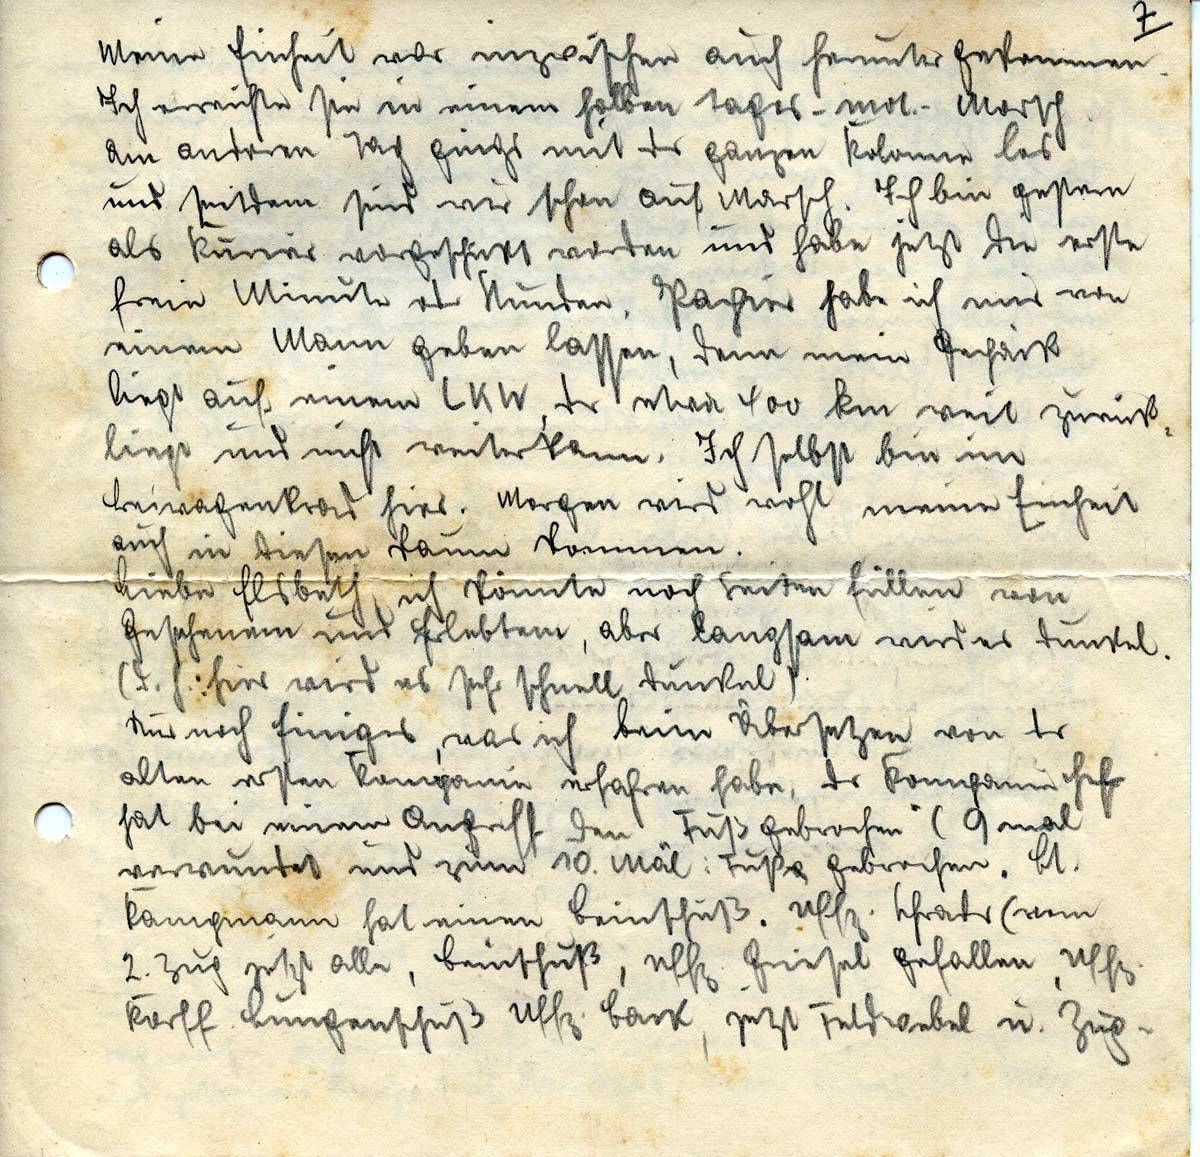 7
Meine Einheit war inzwischen auch herunter gekommen.
Ich erreichte sie in einem halben Tages-mot.-Marsch
Am anderen Tag gings mit der ganzen Kolonne los
und seitdem sind wir schon auf Marsch. Ich bin gestern
als Kurier vorgeschickt worden und habe jetzt die erste
freie Minute oder Stunden. Papier habe ich mir von
einem Mann geben lassen, denn mein Gepäck
liegt auf einem LKW, der etwa 400 km weit zurück-
liegt und nicht weiter kann. Ich selbst bin im
Beiwagenkrad hier. Morgen wird wohl meine Einheit
auch in diesen Raum kommen.
Liebe Elsbeth, ich könnte noch Seiten füllen von
Gesehenem und Erlebtem, aber langsam wird es dunkel.
(d. h.: hier wird es sehr schnell dunkel).
Nur noch Einiges, was ich beim Übersetzen von der
alten ersten Kompanie erfahren habe. Der Kompaniechef
hat bei einem Angriff den "Fuß gebrochen" (9 mal
verwundet und zum 10. Mal: Fuß gebrochen. Lt.
Kampmann hat einen Beinschuß. Uffz. (vom
2. Zug jetzt alle, Beinschuß, Uffz. Griesel gefallen, Uffz.
Korff Lungenschuß Uffz. Bark, jetzt Feldwebel u. Zug-